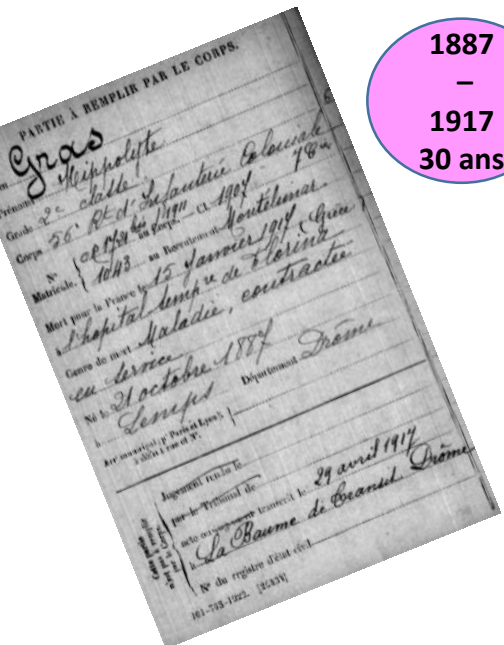 PARTIE À REMPLIR PAR LE CORPS.
Gras
Prénoms Hippolyte
Grade 2e classe
Corps 56e Rt d'Infanterie Coloniale
N° au Corps. — Cl. 1907
Matricule. 1043 au Recrutement Montélimar
Mort pour la France le 15 Janvier 1917
à l'hopital temp re de Florina Grèce
Genre de mort Maladie, contractée
en service
Né le 21 octobre 1887
à Lemps Département Drôme
Arr' municipal (p' Paris et Lyon),
à défaut rue et N°.
Jugement rendu le
par le Tribunal de
acte transcrit le 29 avril 1917
à La Baume de Transit Drôme
N° du registre d'état civil
1887
–
1917
30 ans